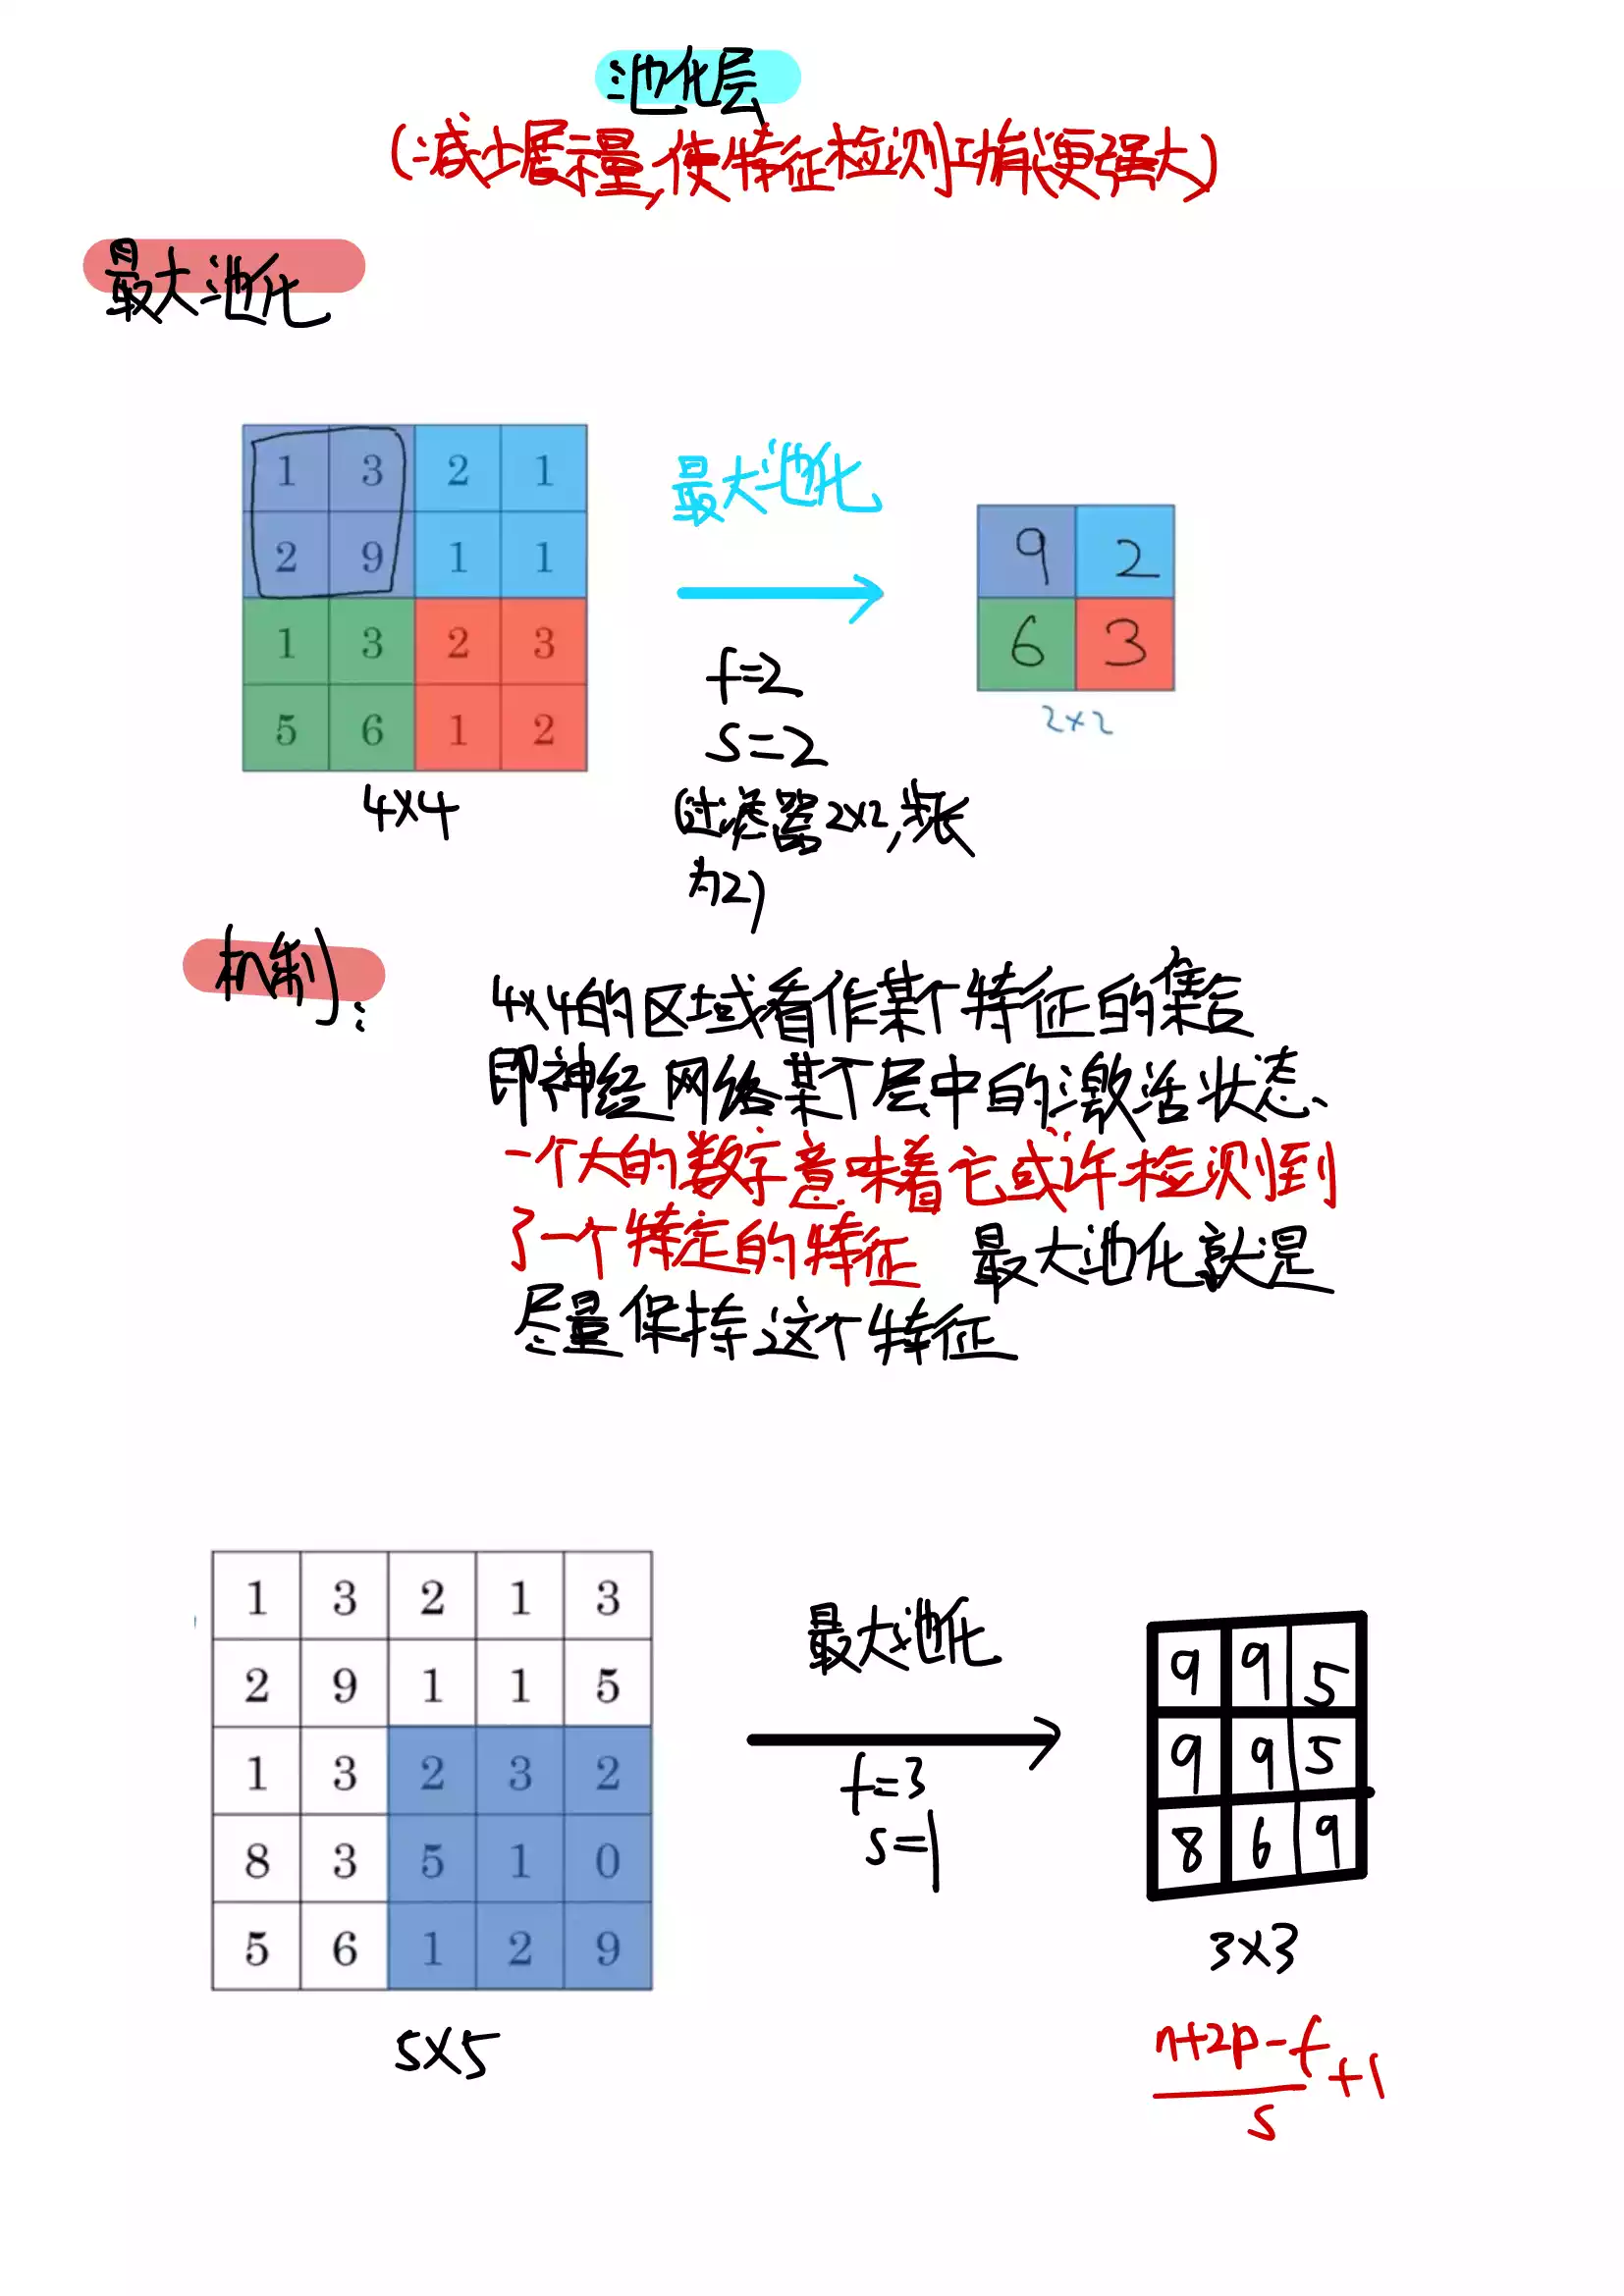 池化层
(减少展示量,使特征检测功能更强大)
最大池化
1 3 2 1
2 9 1 1
1 3 2 3
5 6 1 2
4×4
最大池化
f=2
s=2
(过滤器2×2,步长
为2)
9 2
6 3
2×2
机制:
4×4的区域看作某个特征的集合
即神经网络某个层中的激活状态、
一个大的数字意味着它或许检测到
了一个特定的特征 最大池化就是
尽量保持这个特征
1 3 2 1 3
2 9 1 1 5
1 3 2 3 2
8 3 5 1 0
5 6 1 2 9
5×5
最大池化
f=3
s=1
9 9 5
9 9 5
8 6 9
3×3
n+2p-f
s
+1